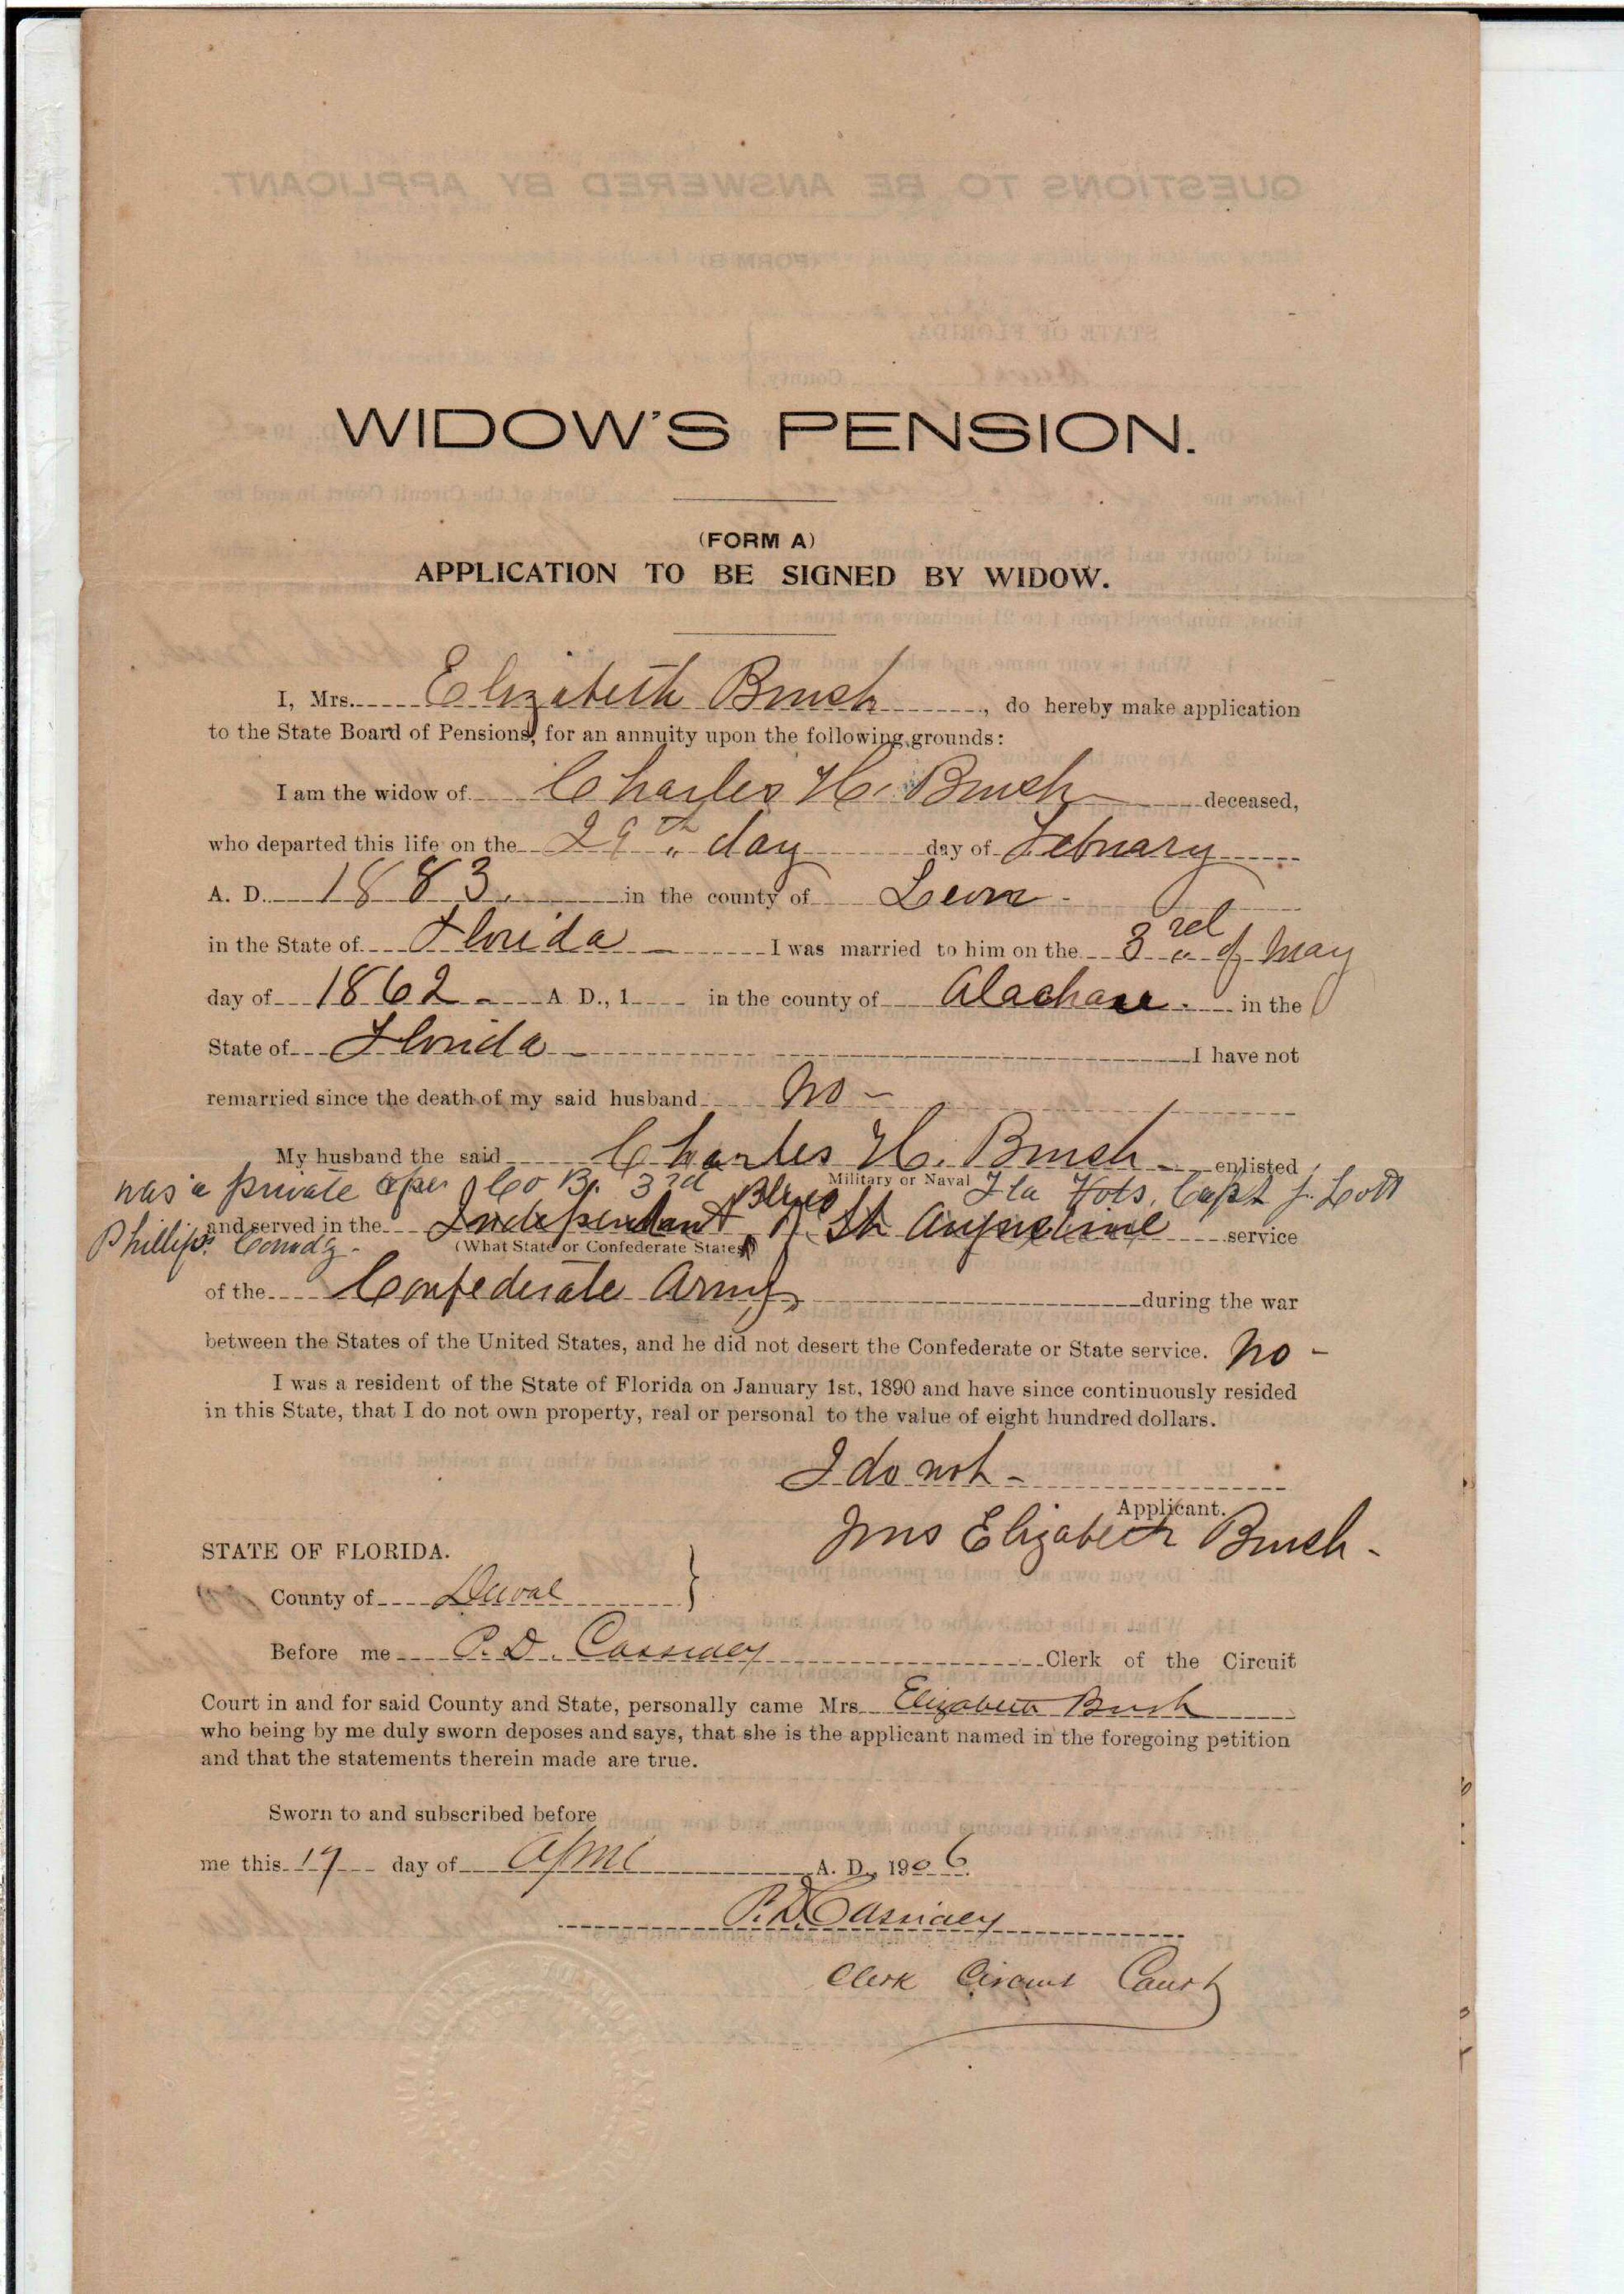 WIDOW'S PENSION.
(FORM A)
APPLICATION TO BE SIGNED BY WIDOW.
I, Mrs. Elizabeth Brush, do hereby make application
to the State Board of Pensions, for an annuity upon the following grounds:
I am the widow of Charles H. Brush deceased,
who departed this life on the 29th day day of Febuary
A. D. 1883. in the county of Leon -
in the State of Florida - I was married to him on the 3rd of May
day of 1862 - A D., 1 in the county of Alachaua. in the
State of Florida - I have not
remarried since the death of my said husband No -
My husband the said Charles H. Brush - enlisted
Military or Naval
was a private Co B, 3rd Fla Vols, Capt J. Lott
Phillips Comdg.
and served in the Independant Blues, St Augustine service
(What State or Confederate States)
of the Confederate Army, during the war
between the States of the United States, and he did not desert the Confederate or State service. No -
I was a resident of the State of Florida on January 1st, 1890 and have since continuously resided
in this State, that I do not own property, real or personal to the value of eight hundred dollars.
I do not -
Applicant.
Mrs Elizabeth Brush -
STATE OF FLORIDA.
County of Duval }
Before me P. D. Cassidey Clerk of the Circuit
Court in and for said County and State, personally came Mrs Elizabeth Brush
who being by me duly sworn deposes and says, that she is the applicant named in the foregoing petition
and that the statements therein made are true.
Sworn to and subscribed before
me this 19 day of April A. D., 1906.
P. D. Cassidey
Clerk Circuit Court